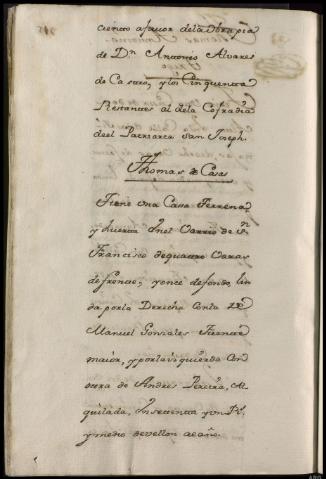 ciento afavor dela Obrapia
de Dn. Antonio Alvares
de Castro, y los Cinquenta
Restantes al dela Cofradia
deel Patriarca San Joseph.
Thomas de Casas
Tiene una Casa Terrena
y huerta Enel Varrio de Sn.
Francisco dequatro Varas
defrente, yonce defondo, lin
da porla Derecha Conla de
Manuel Gonsales Theniente
maior, y porlaisquierda Con
otra de Andres Pereira, Al
quilada, En setenta y un Rl.
y medio devellon alaño.